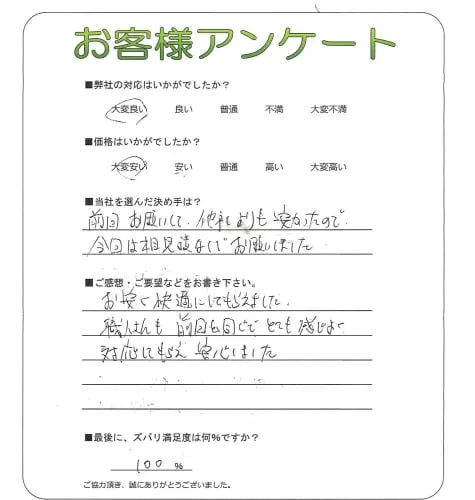 お客様アンケート
■弊社の対応はいかがでしたか？
大変良い 良い 普通 不満 大変不満
■価格はいかがでしたか？
大変安い 安い 普通 高い 大変高い
■当社を選んだ決め手は？
前回お願いして、他社よりも安かったので
今回は相見積なしでお願いしました
■ご感想・ご要望などをお書き下さい。
お安く快適にしてもらえました。
職人さんも前回と同じでとても感じよく
対応してもらえ安心しました
■最後に、ズバリ満足度は何%ですか？
100 %
ご協力頂き、誠にありがとうございました。